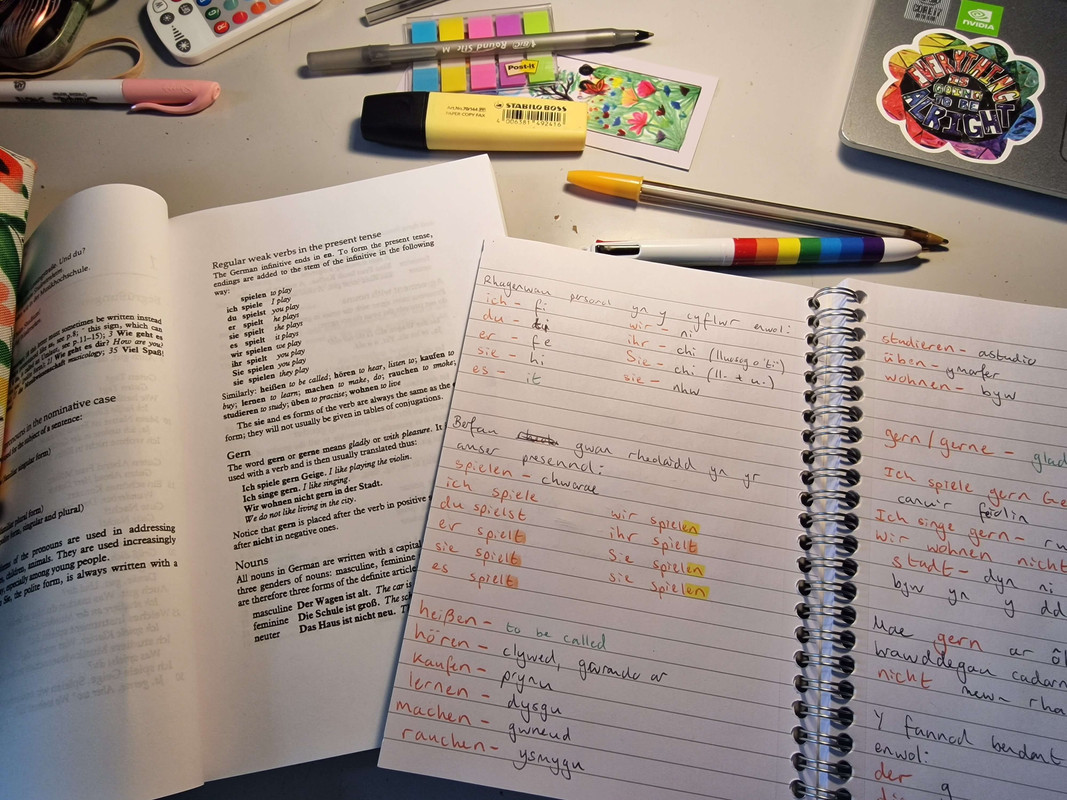 BiC Round Stic M
Post-it
STABILO BOSS
PAPER-COPY-FAX
4 006381 492416
NVIDIA
EVERYTHING
IS
GOING
TO BE
ALRIGHT
Und du?
Musikhochschule.
must sometimes be written instead
this sign, which can
see pp.11–15); 3 Wie geht es
Wie geht es dir? How are you?
musicology; 35 Viel Spaß!
pronouns in the nominative case
used for the subject of a sentence:
singular form)
plural form)
form, singular and plural)
of the pronouns are used in addressing
children, animals. They are used increasingly
especially among young people.
Sie, the polite form, is always written with a
Regular weak verbs in the present tense
The German infinitive ends in en. To form the present tense,
endings are added to the stem of the infinitive in the following
way:
spielen to play
ich spiele I play
du spielst you play
er spielt he plays
sie spielt she plays
es spielt it plays
wir spielen we play
ihr spielt you play
Sie spielen you play
sie spielen they play
Similarly: heißen to be called; hören to hear, listen to; kaufen to
buy; lernen to learn; machen to make, do; rauchen to smoke;
studieren to study; üben to practise; wohnen to live
The sie and es forms of the verb are always the same as the
form; they will not usually be given in tables of conjugations.
Gern
The word gern or gerne means gladly or with pleasure. It
used with a verb and is then usually translated thus:
Ich spiele gern Geige. I like playing the violin.
Ich singe gern. I like singing.
Wir wohnen nicht gern in der Stadt.
We do not like living in the city.
Notice that gern is placed after the verb in positive
after nicht in negative ones.
Nouns
All nouns in German are written with a capital
three genders of nouns: masculine, feminine
are therefore three forms of the definite article
masculine Der Wagen ist alt. The car is
feminine Die Schule ist groß. The sch
neuter Das Haus ist nicht neu. T
Rhagenwau personol yn y cyflwr enwol:
ich – fi
du – ti wir – ni
er – fe ihr – chi (lluosog o 'ti')
sie – hi Sie – chi (ll. + u.)
es – it sie – nhw
Berfau gwan rheolaidd yn yr
amser presennol:
spielen – chwarae
ich spiele
du spielst wir spielen
er spielt ihr spielt
sie spielt Sie spielen
es spielt sie spielen
heißen – to be called
hören – clywed, gwrando ar
kaufen – prynu
lernen – dysgu
machen – gwneud
rauchen – ysmygu
studieren – astudio
üben – ymarfer
wohnen – byw
gern/gerne – glad
Ich spiele gern Ge
canu'r feidlin
Ich singe gern –
Wir wohnen nicht
stadt – dyn ni
byw yn y dd
Mae gern ar ôl
brawddegau cadarn
nicht mewn rha
Y fannod bendant
enwol:
der